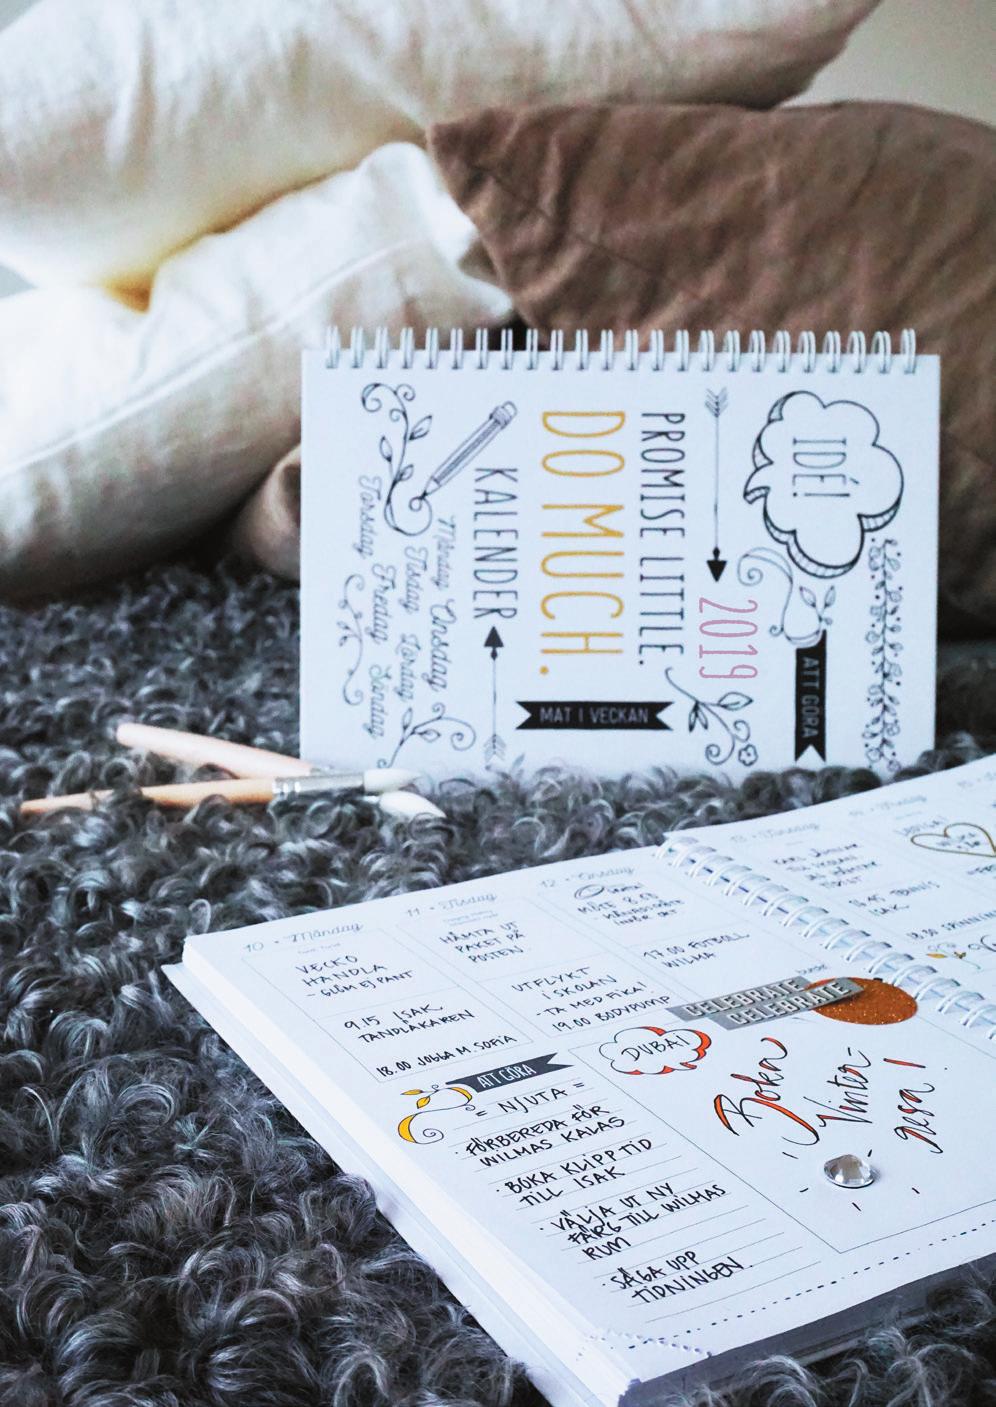 IDÉ!
ATT GÖRA
2019
PROMISE LITTLE.
DO MUCH.
MAT I VECKAN
KALENDER
Måndag Onsdag
Tisdag Lördag
Fredag Söndag
Torsdag
10 • Måndag
VECKO
HANDLA
- GLÖM EJ PANT
9.15 ISAK
TANDLÄKAREN
18.00 JOGGA M. SOFIA
11 • Tisdag
HÄMTA UT
PAKET PÅ
POSTEN
UTFLYKT
I SKOLAN
- TA MED FIKA!
19.00 BODYPUMP
12 • Onsdag
MÖTE
17.00 FOTBOLL
WILMA
13 • Torsdag
ISAK
18.30 SPINNING
CELEBRATE
CELEBRATE
DUBAI
Boka
Vinter-
resa!
ATT GÖRA
= NJUTA =
· FÖRBEREDA FÖR
WILMAS KALAS
· BOKA KLIPPTID
TILL ISAK
· VÄLJA UT NY
FÄRG TILL WILMAS
RUM
SÄGA UPP
TIDNINGEN.